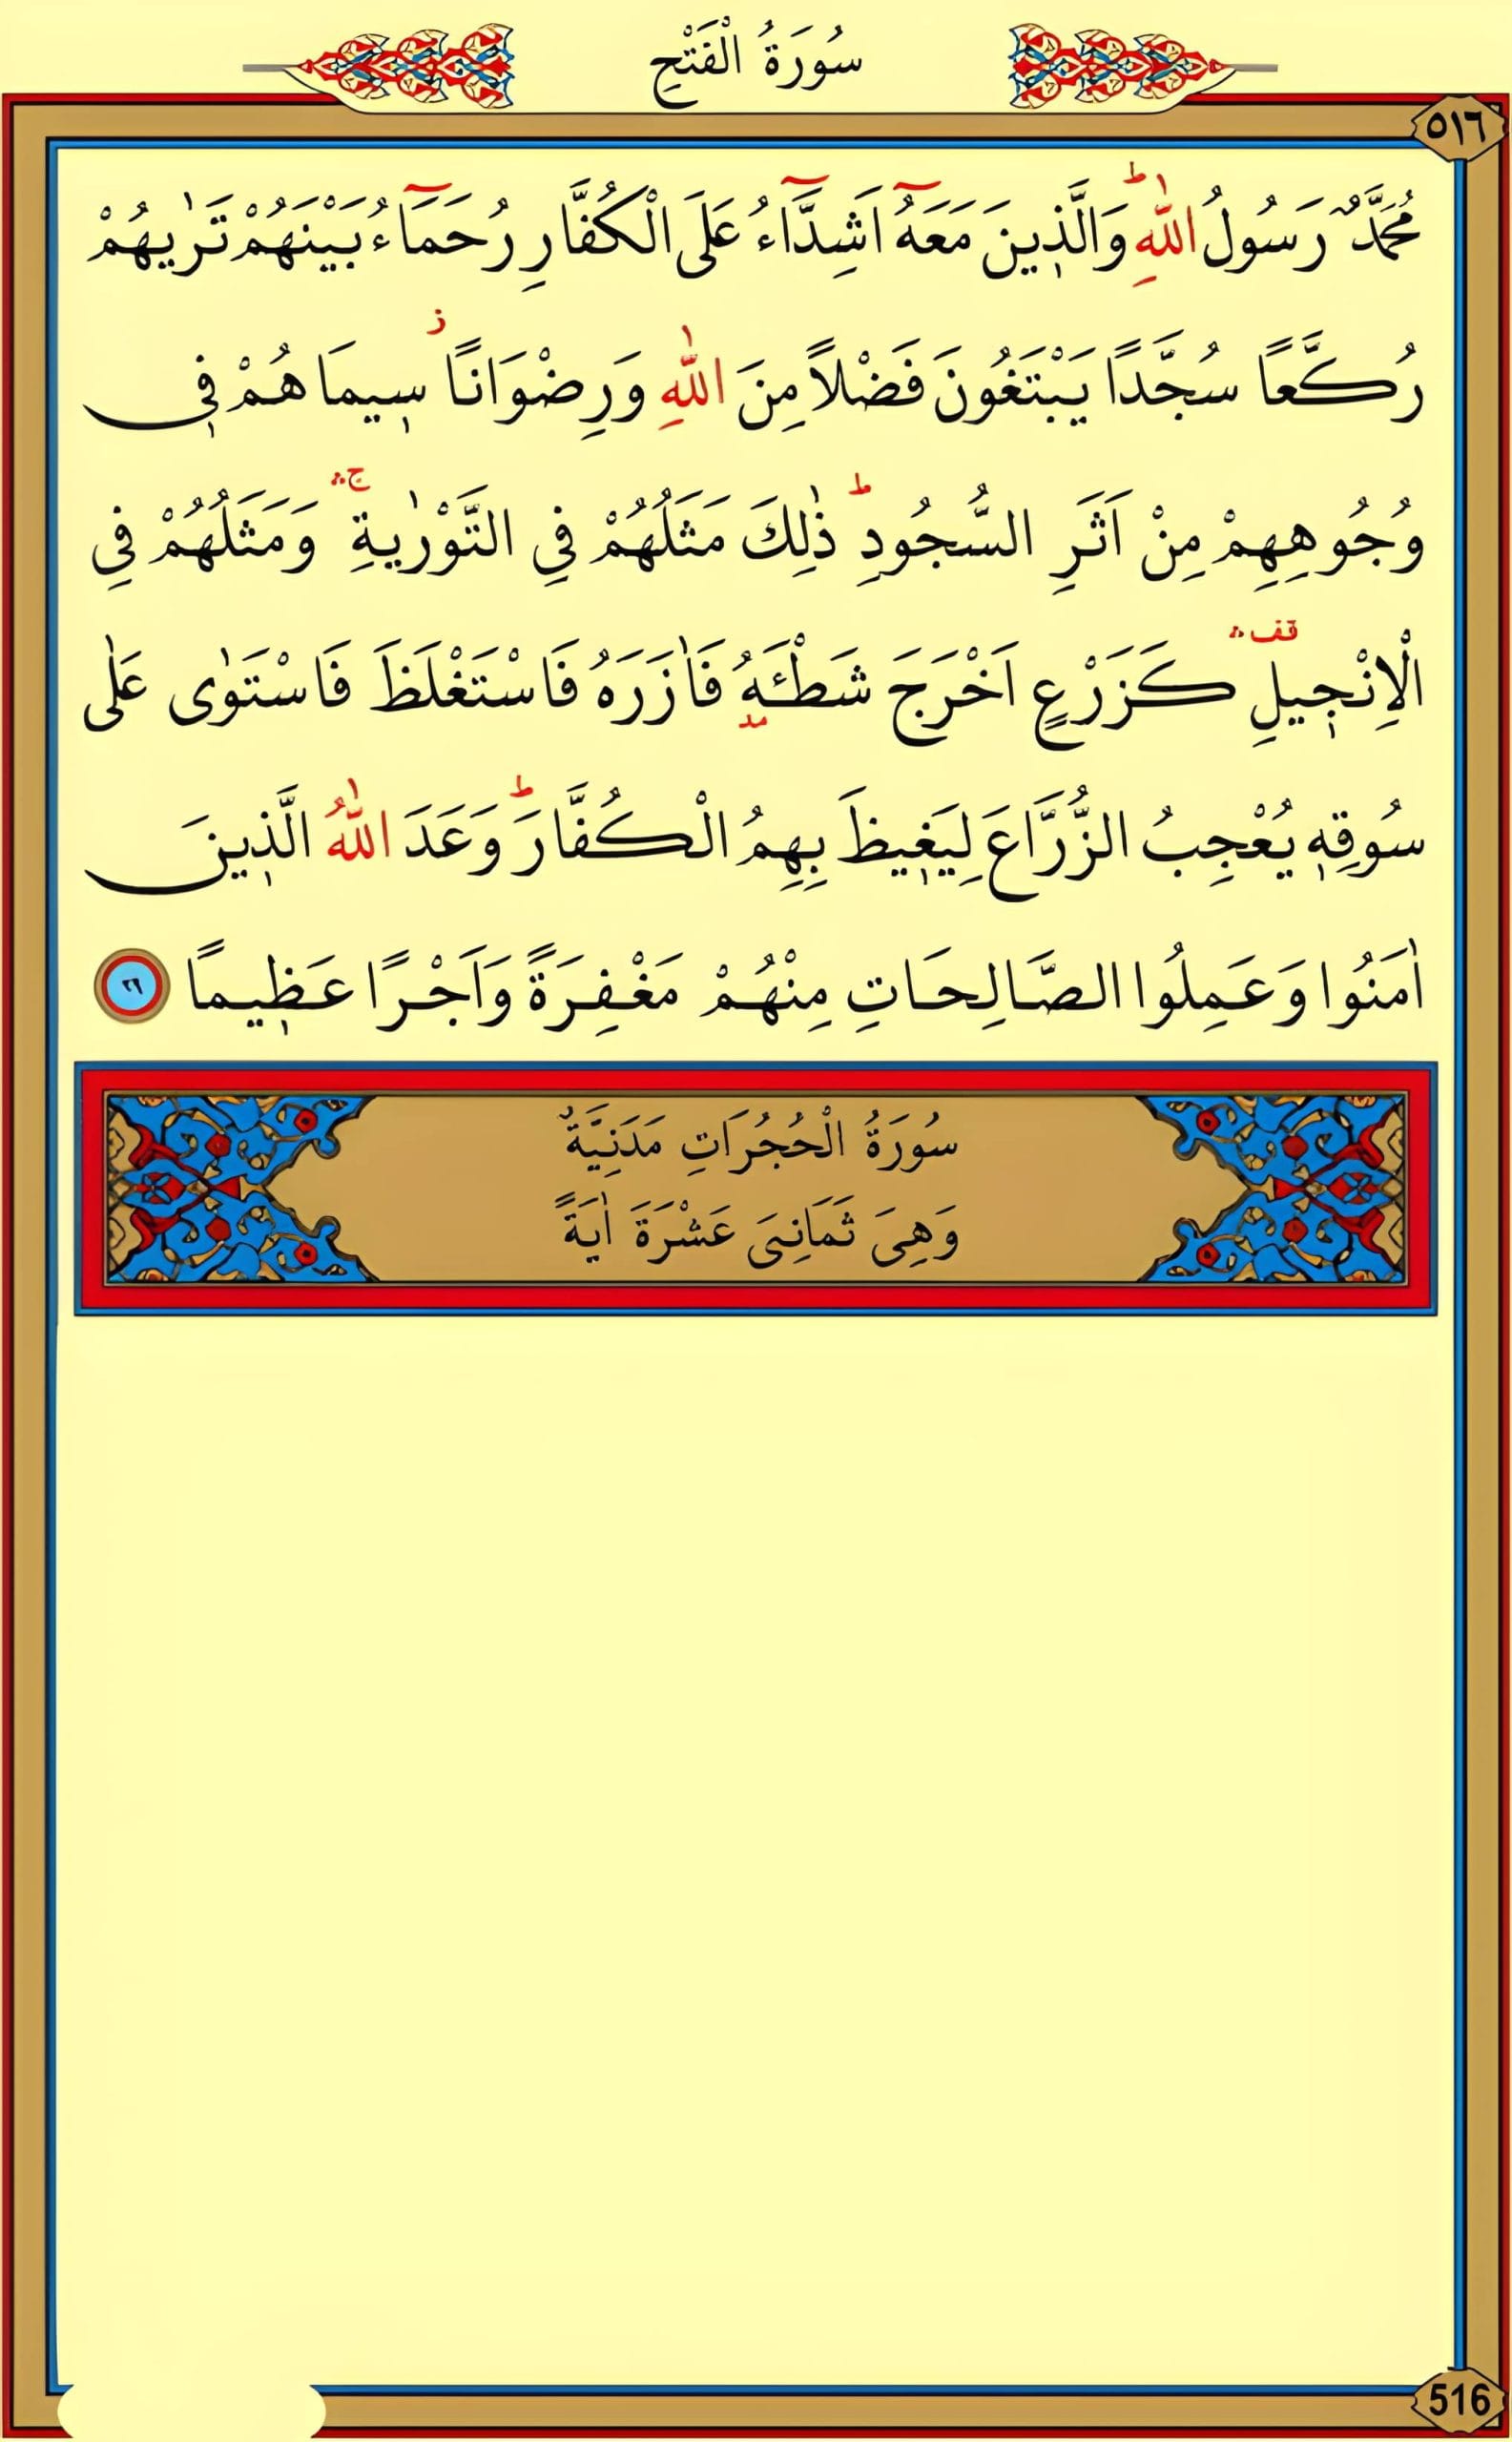 سُورَةُ الْفَتْحِ
٥١٦
مُحَمَّدٌ رَسُولُ اللّٰهِ ؕ وَالَّذٖينَ مَعَهُٓ اَشِدَّٓاءُ عَلَى الْكُفَّارِ رُحَمَٓاءُ بَيْنَهُمْ تَرٰيهُمْ
رُكَّعًا سُجَّدًا يَبْتَغُونَ فَضْلًا مِنَ اللّٰهِ وَرِضْوَانًا ؗ سٖيمَاهُمْ فٖى
وُجُوهِهِمْ مِنْ اَثَرِ السُّجُودِ ؕ ذٰلِكَ مَثَلُهُمْ فِى التَّوْرٰيةِ ۚۛ وَمَثَلُهُمْ فِى
الْاِنْجٖيلِ ۛ قف كَزَرْعٍ اَخْرَجَ شَطْـَٔهُ فَاٰزَرَهُ فَاسْتَغْلَظَ فَاسْتَوٰى عَلٰى
مد
سُوقِهٖ يُعْجِبُ الزُّرَّاعَ لِيَغٖيظَ بِهِمُ الْكُفَّارَ ؕ وَعَدَ اللّٰهُ الَّذٖينَ
اٰمَنُوا وَعَمِلُوا الصَّالِحَاتِ مِنْهُمْ مَغْفِرَةً وَاَجْرًا عَظٖيمًا ٢٩
سُورَةُ الْحُجُرَاتِ مَدَنِيَّةٌ
وَهِىَ ثَمَانِىَ عَشْرَةَ اٰيَةً
516